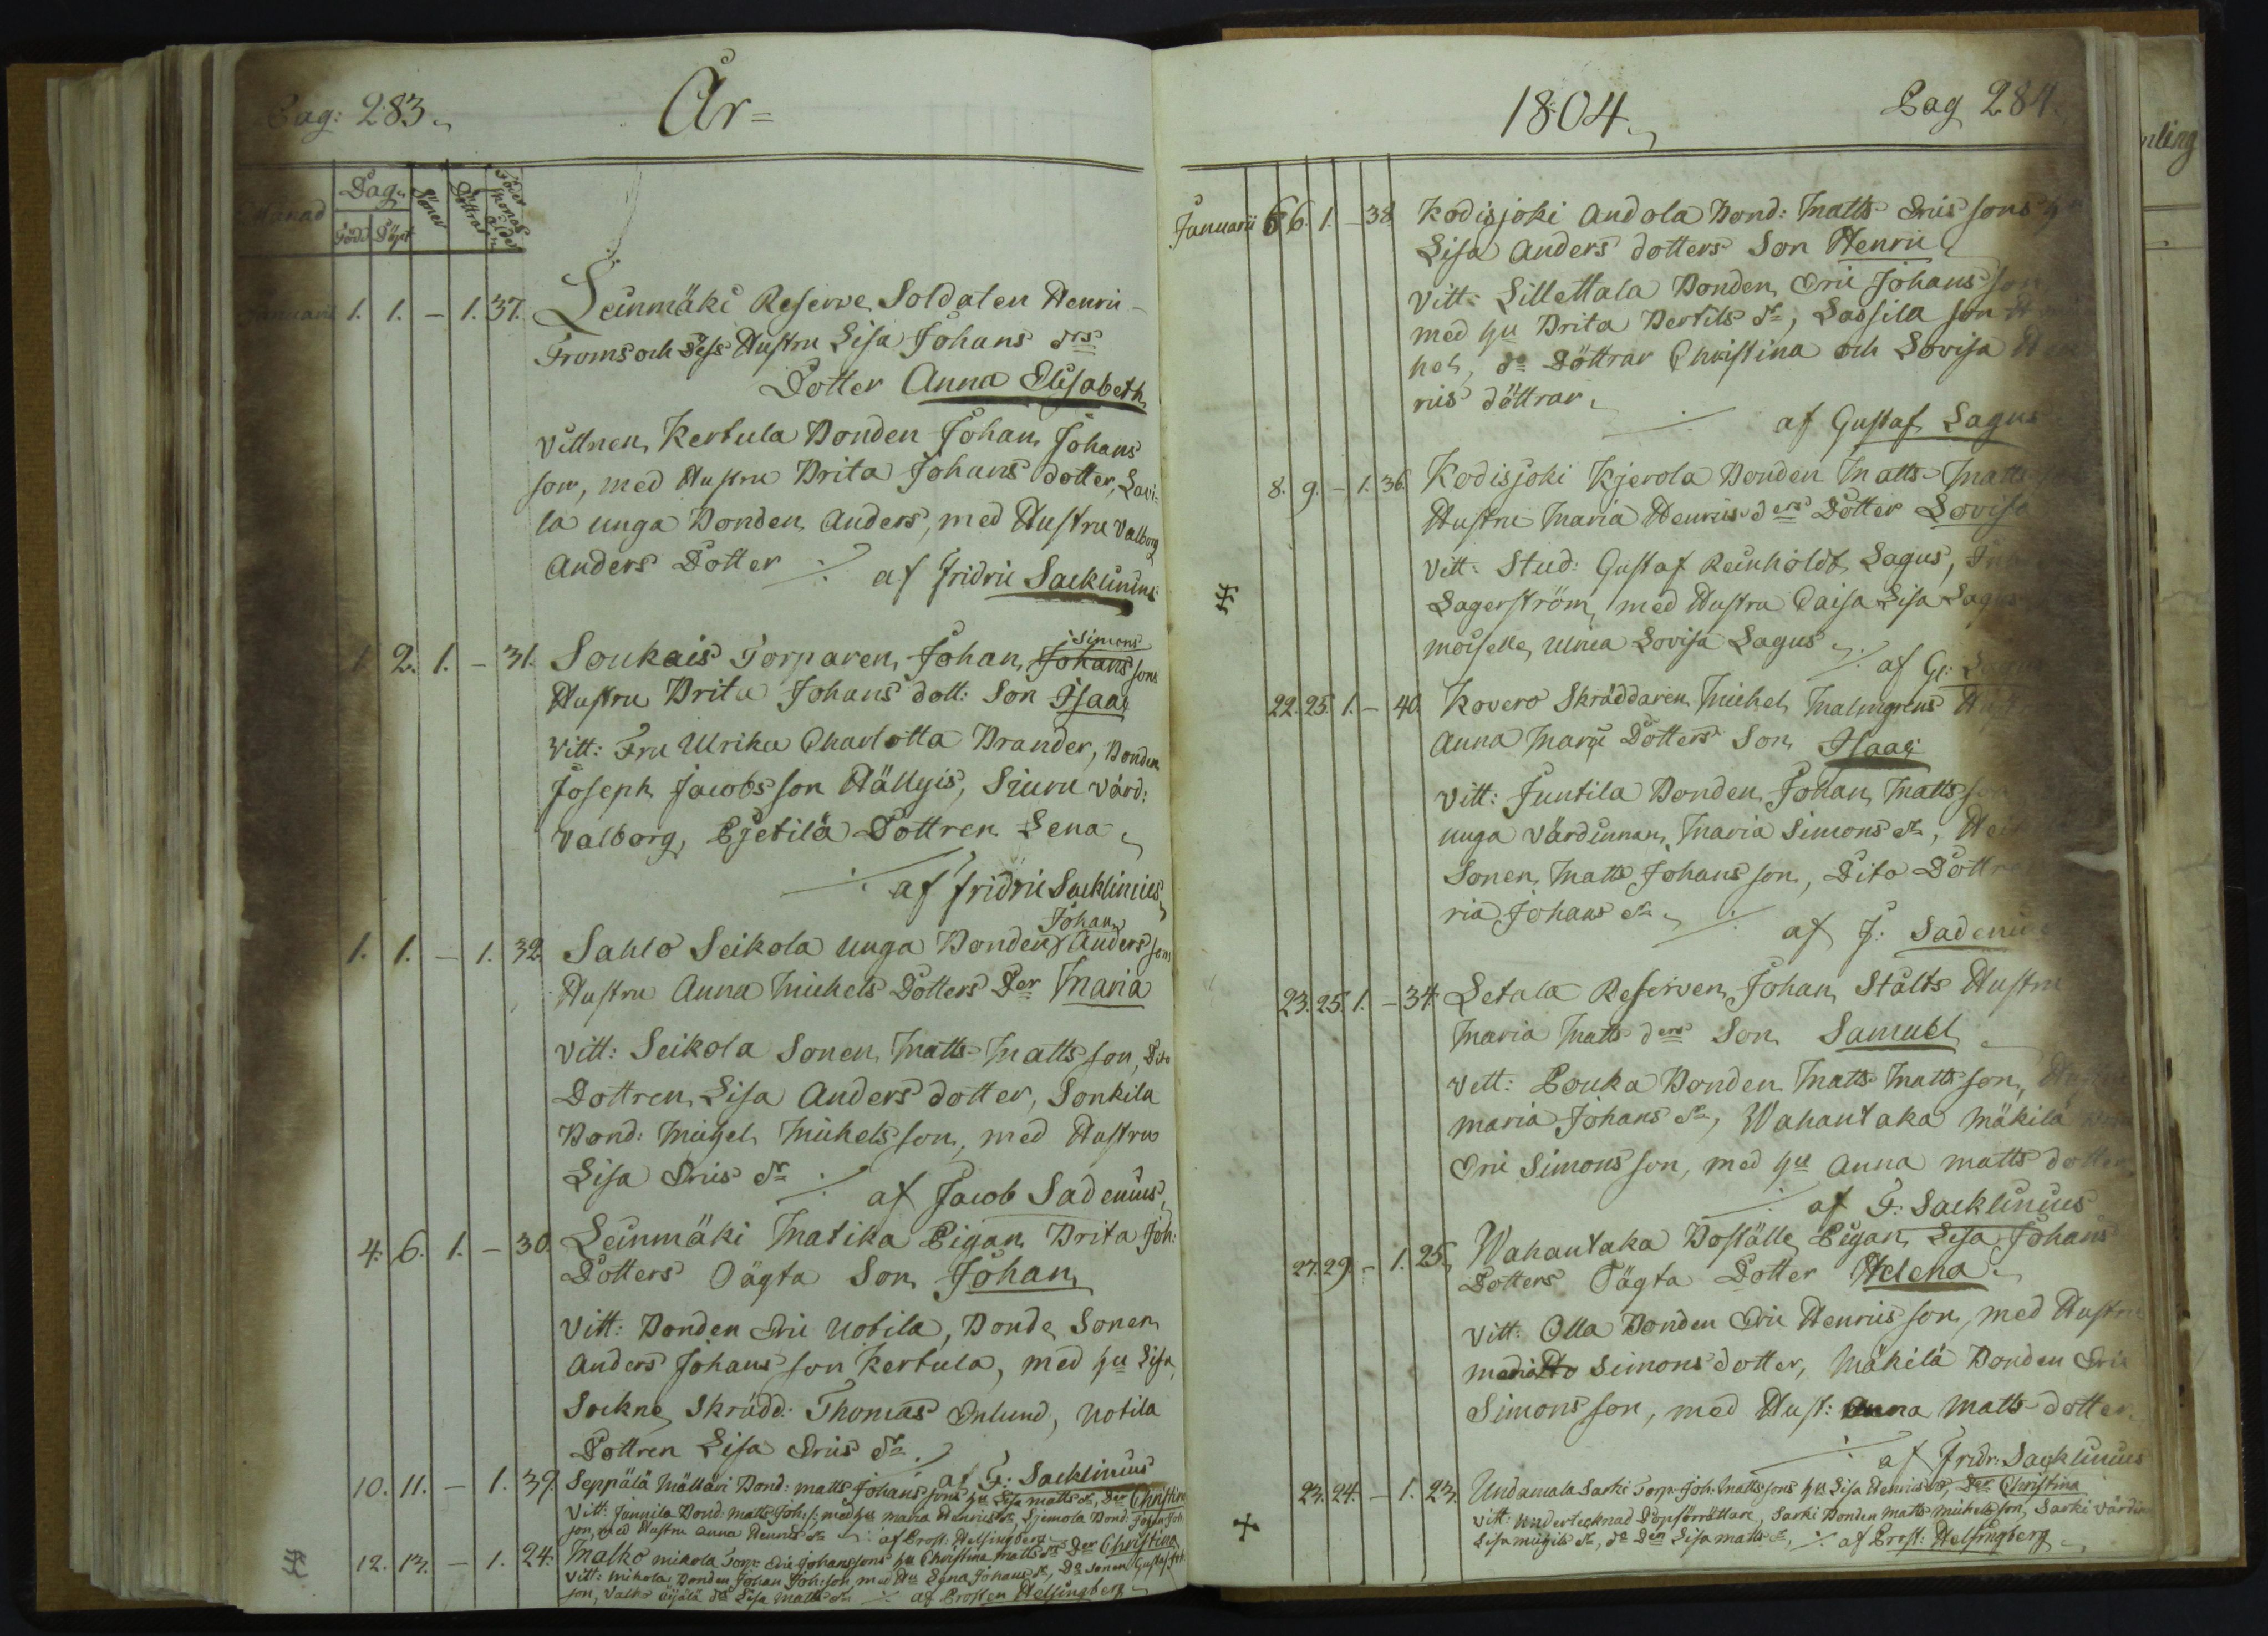 Pag: 283.
År=
Månad
Dag.
Född Döpt
Söner
Döttrar
Januarii 1. 1. – 1. 37. Leinmäki Reserve Soldaten Henric
Froms och Dess Hustru Lisa Johans drs
Dotter Anna Elisabeth
Vittnen, Kertula Bonden Johan Johans
son, med Hustru Brita Johans dotter, Lavi-
la unga Bonden Anders, med Hustru Valborg
Anders Dotter ./. af Fridric Sacklinius
1. 2. 1. – 31. Soukais Torparen, Johan, Johans sons
Simons
Hustru Brita Johans dott: Son Isaac
Vitt: Fru Ulrika Charlotta Brander, Bonden
Joseph Jacobs son Hällyis, Siuru värd:
Valborg, Pjetilä Dottren Lena
./. af Fridric Sacklinius
Johan
1. 1. – 1. 32. Sahlo Seikola unga Bonden Anders son
Hustru Anna Michels Dotters Der Maria
Vitt: Seikola Sonen, Matts Matts son, Dito
Dottren, Lisa Anders dotter, Sonkila
Bond: Michel Michels son, med Hustru
Lisa Erics dr ./. af Jacob Sadenius,
4. 6. 1. – 30. Leinmäki Matika Pigan Brita Joh:
Dotters Oägta Son Johan
Vitt: Bonden Eric Uotila, Bonde Sonen
Anders Johans son Kertula, med hu Lisa,
Sockne Skrädd: Thomas Enlund, Uotila
Dottren Lisa Erics dr
./. af F: Sacklinius
10. 11. – 1. 39. Seppälä Mältäri Bond: Matts Johans sons hu Lisa Matts dr, Der Christina
Vitt: Junnila Bond: Matts Joh: s: med hu Maria Henrics dr, Bond: Johan Joh:
son, med Hustru Anna Henrics dr ./. af Prost: Helsingberg
12. 13. – 1. 24. Malko Mikola Torp: Eric Johans sons hu Christina Matts drs Der Christina
Vitt: Mikola Bonden Johan Joh: son, med Hu Lena Johans dr, Do sonen Gustaf
son, Valko Äijälä Lisa Matts dr ./. af Prosten Helsingberg
1804.
Pag 284.
Januarii 6. 6. 1. – 38. Kodisjoki Andola Bond: Matts Erics sons hu
Lisa Anders dotters Son Henric
Vitt: Sillettala Bonden Eric Johans son
med hu Brita Bertils dr, Lassila son
hel, do Döttrar Christina och Lovisa
rics döttrar
./. af Gustaf Lagus
8. 9. – 1. 36. Kodisjoki Kjerola Bonden Matts Matts
Hustru Maria Henrics ders Dotter Lovisa
Vitt: Stud: Gustaf Reinholdt Lagus,
Lagerström, med Hustru Caisa Lisa Lagus
moiselle, Ulrica Lovisa Lagus
./. af G: Lagus
22. 25. 1. – 40. Kovero Skräddaren Michel Malmgrens
Anna Marie Dotters Son Isaac
Vitt: Juntila Bonden, Johan, Matts son
unga värdinnan, Maria Simons dr,
Sonen, Matts Johans son, Dito Dottre
ria Johans dr
./. af J: Sadenius
23. 25. 1. – 34. Letala Reserven Johan, Stålts Hustru
Maria Matts ders Son Samuel
Vitt: Pouka Bonden Matts Matts son,
Maria Johans dr, Wahantaka Mäkilä
Eric Simons son, med hu Anna Matts dotter
./. af F: Sacklinius
27. 29. – 1. 25. Wahantaka Boställe Pigan, Lisa Johans
Dotters Oägta Dotter Helena
Vitt: Olla Bonden Eric Henrics son, med Hustru
Simons dotter, Mäkilä Bonden Eric
Simons son, med Hust: Anna Matts dotter
./. af Fridr: Sacklinius
23. 24. – 1. 23. Undamala Sarki Torp: Joh: Matts sons hus Lisa Henrics dr, Der Christina
Vitt: Undertecknad Döpförrättare, Sarki Bonden Matts Michels son, Sarki värdin
Lisa Michels dr, do Den Lisa Matts dr, ./. af Prost: Helsingberg